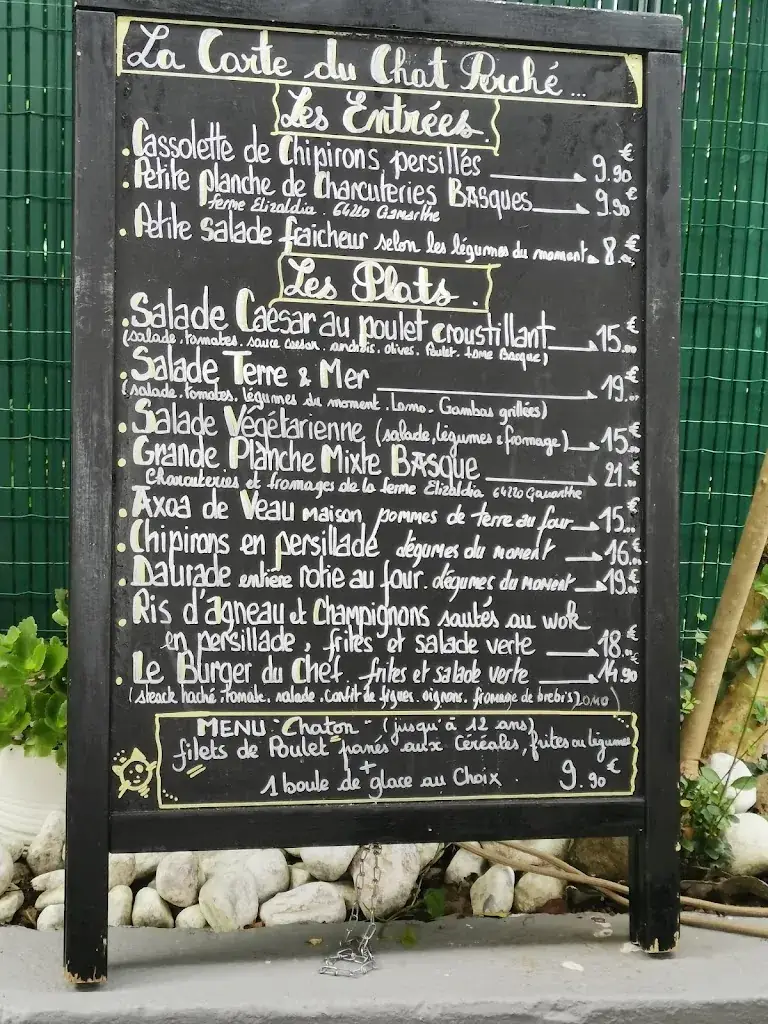 La Carte du Chat Perché...
Les Entrées.
. Cassolette de Chipirons persillés 9.90€
. Petite planche de Charcuteries BASQUES 9.90€
ferme Elizaldia. 64220 Gamarthe
. Petite salade fraîcheur selon les légumes du moment 8.00€
Les Plats.
. Salade Caesar au poulet croustillant 15.00€
(salade. tomates. sauce caesar. anchois. olives. Poulet. tome Basque)
. Salade Terre & Mer 19.00€
(salade. tomates. légumes du moment. Lomo. Gambas grillées)
. Salade Végétarienne (salade, légumes & fromage) 15.00€
. Grande Planche Mixte BASQUE 21.00€
Charcuteries et fromages de la ferme Elizaldia 64220 Gamarthe
. Axoa de Veau maison, pommes de terre au four 15.00€
. Chipirons en persillade légumes du moment 16.00€
. Daurade entière rotie au four. légumes du moment 19.00€
. Ris d'agneau et Champignons sautés au wok
en persillade, frites et salade verte 18.00€
. Le Burger du Chef. frites et salade verte 14.90€
(steack haché, tomate. salade. confit de figues. oignons. fromage de brebis LOMO)
MENU "Chaton" (jusqu'à 12 ans)
filets de Poulet panés aux Céréales, frites ou légumes
+
1 boule de glace au Choix. 9.90€